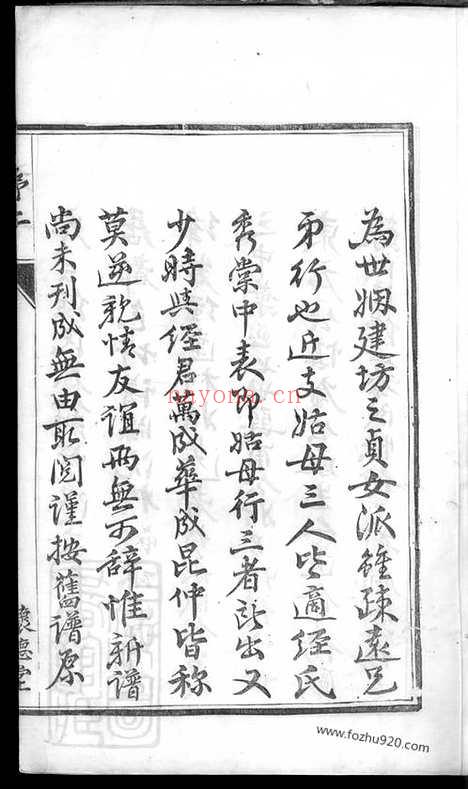 為世姻建坊之貞女派雖疎遠兄
弟行也近支姑母三人皆適經氏
秀棠中表即姑母行三者所出又
少時與經君萬成華成昆仲皆称
莫逆親情友誼兩無可辭惟新譜
尚未刊成無由取閱謹按舊譜原
序二
懷德堂
nayona.cn
www.fozhu920.com